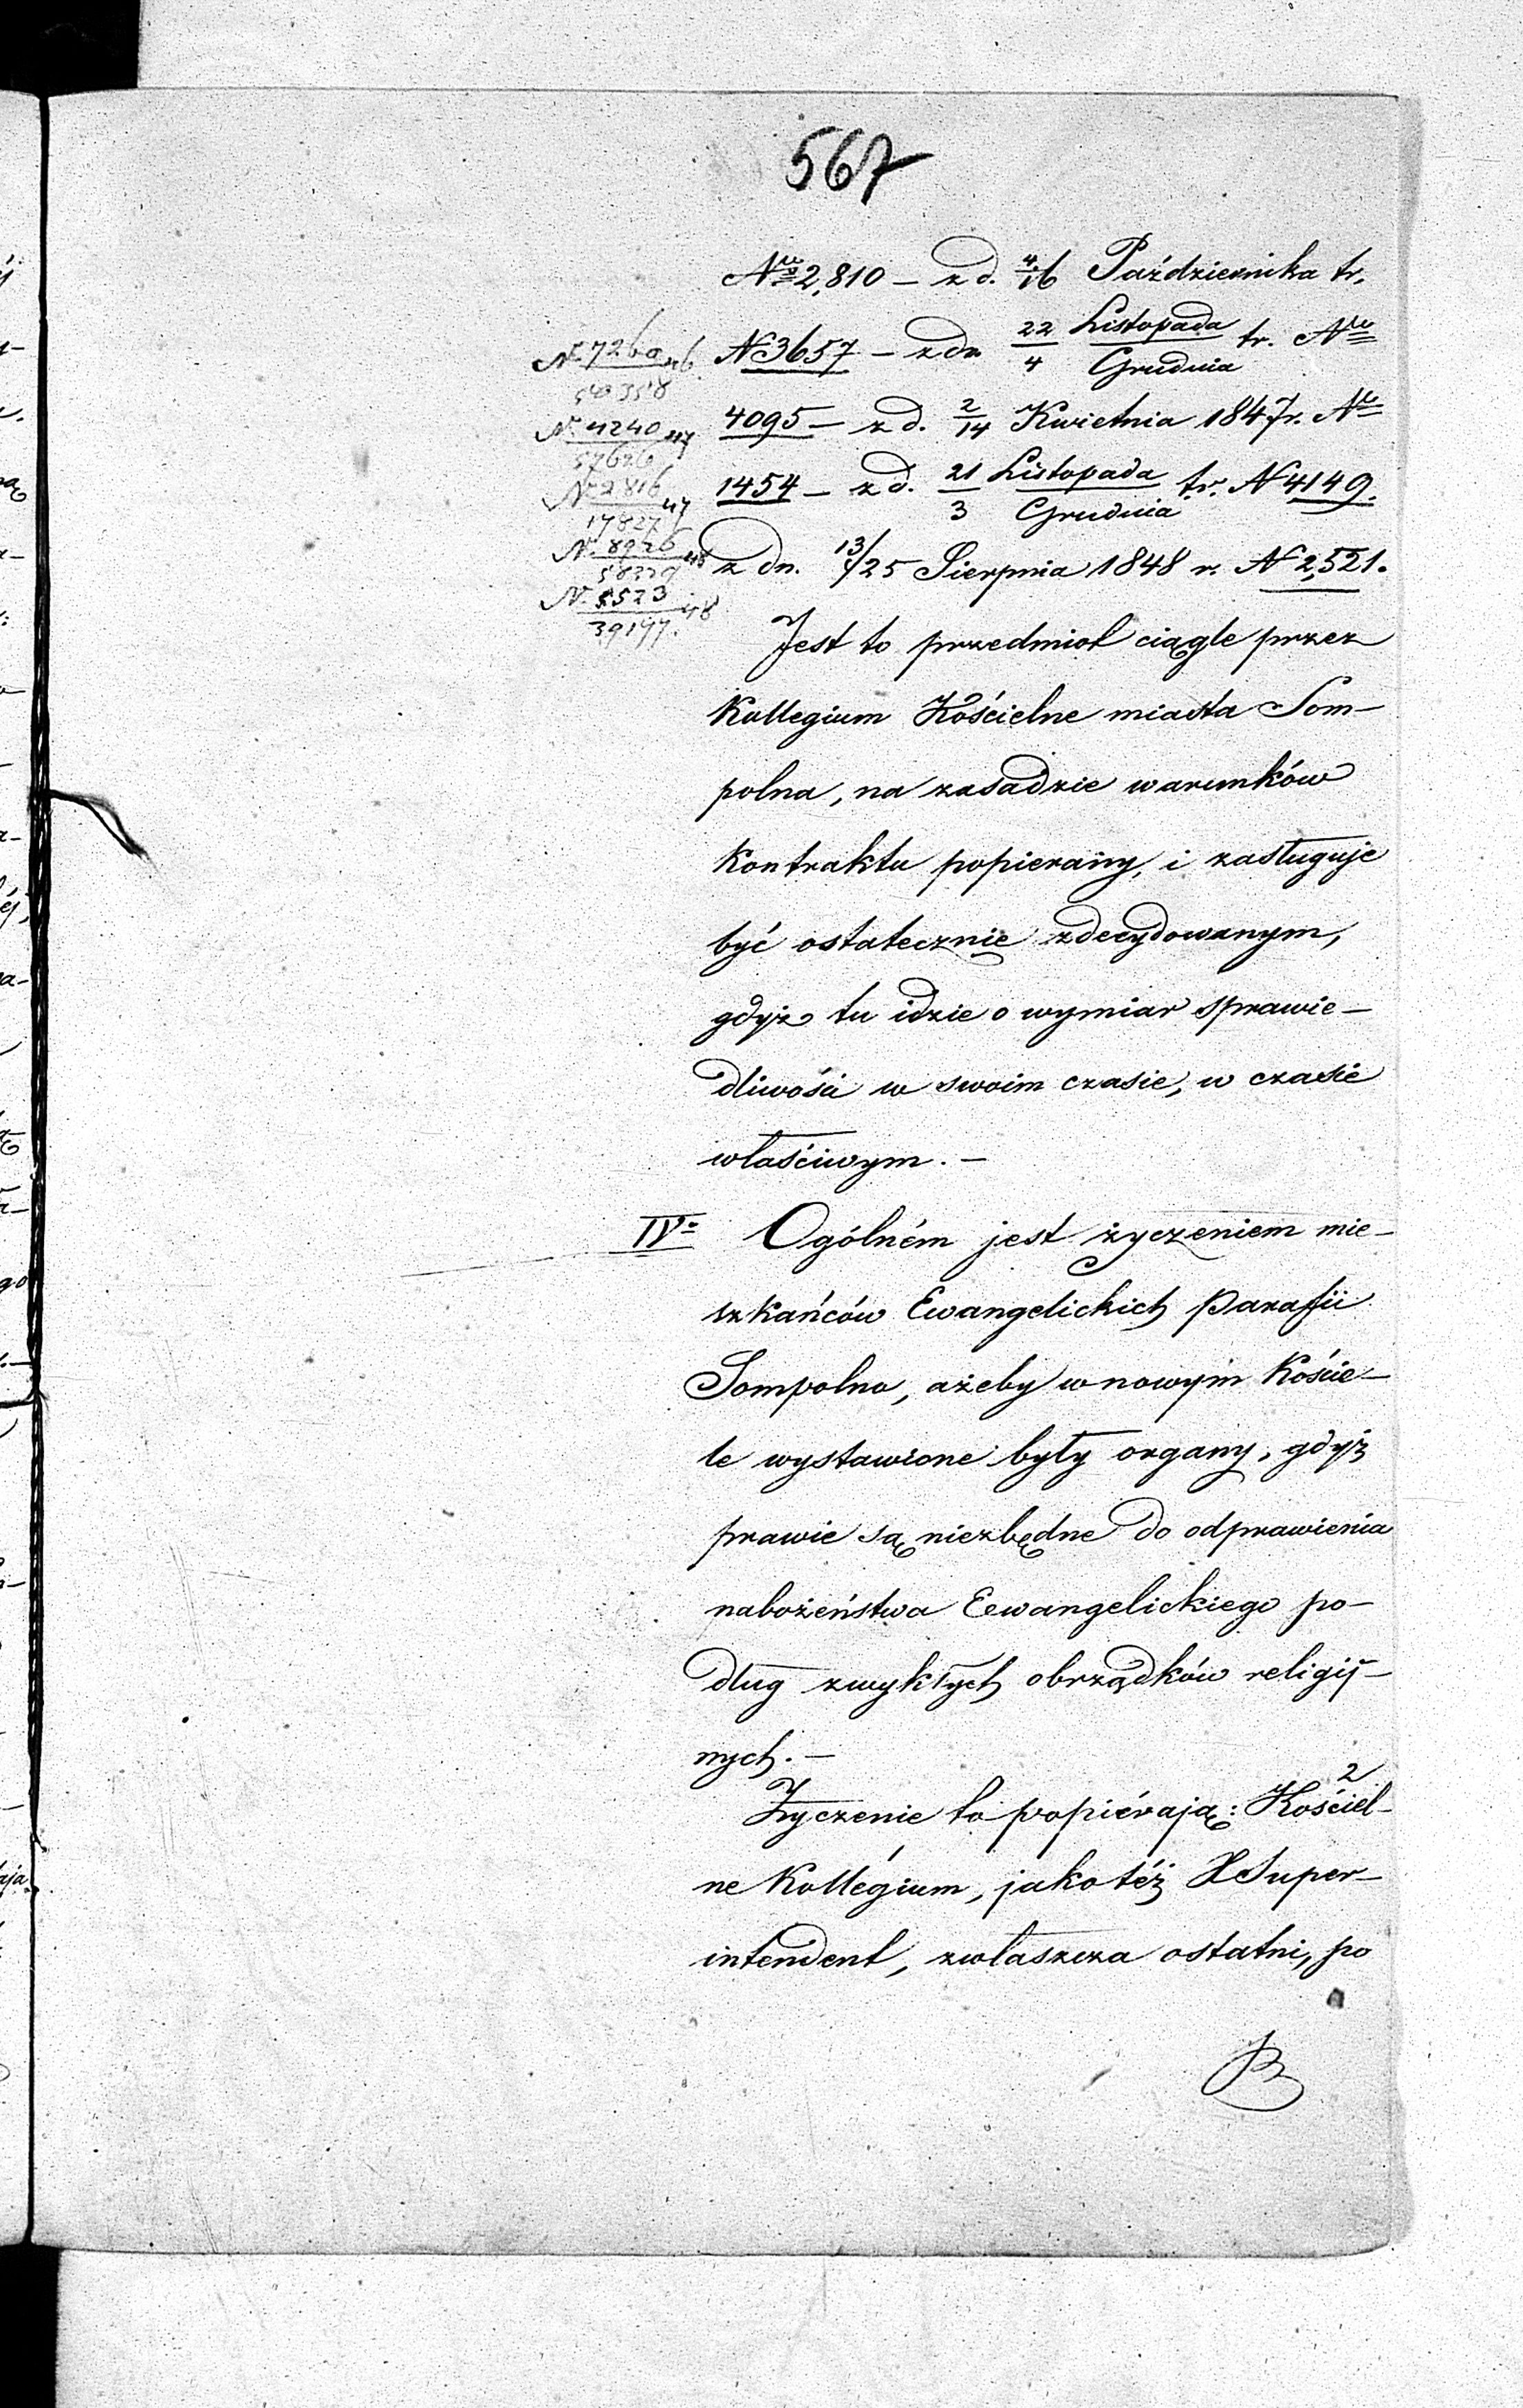 567
Nro 2,810 – z d. 4/16 Października tr.
N 3657 – z dn 22 Listopada / 4 Grudnia tr. Nro
4095 – z d. 2/14 Kwietnia 1847 r. Nro
1454 – z d. 21 Listopada / 3 Grudnia tr. N 4149.
z dn. 13/25 Sierpnia 1848 r. N 2,521.
N. 7260 / 50358 46
N. 4240 / 57626 47
N. 2816 / 17827 47
N. 8926 / 58329 48
N. 5523 / 39197. 48
Jest to przedmiot ciągle przez
Kollegium Kościelne miasta Som–
polna, na zasadzie warunków
Kontraktu popierany, i zasługuje
być ostatecznie zdecydowanym,
gdyż tu idzie o wymiar sprawie–
dliwości w swoim czasie, w czasie
właściwym. –
IV° Ogólném jest życzeniem mie–
szkańców Ewangelickich Parafii
Sompolno, ażeby w nowym Koście–
le wystawione były organy, gdyż
prawie są niezbędne do odprawienia
nabożeństwa Ewangelickiego po–
dług zwykłych obrządków religij–
nych. –
Życzenie to popiérają: Kościel–
ne Kollégium, jako téż X Super–
intendent, zwłaszcza ostatni, po